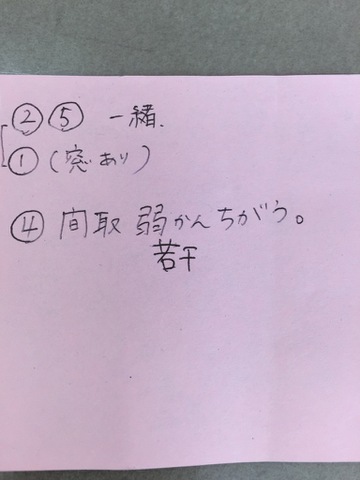 ②⑤ 一緒.
①(窓あり)
④間取 弱かんちがう。
若干